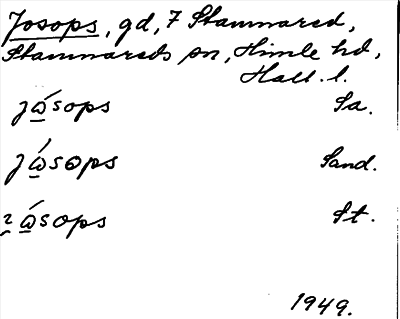 Josops, gd, 7 Stammared,
Stammareds sn, Himle hd,
Hall. l.
jώsops Sa.
jώsops Sand.
ωsops St.
1949.